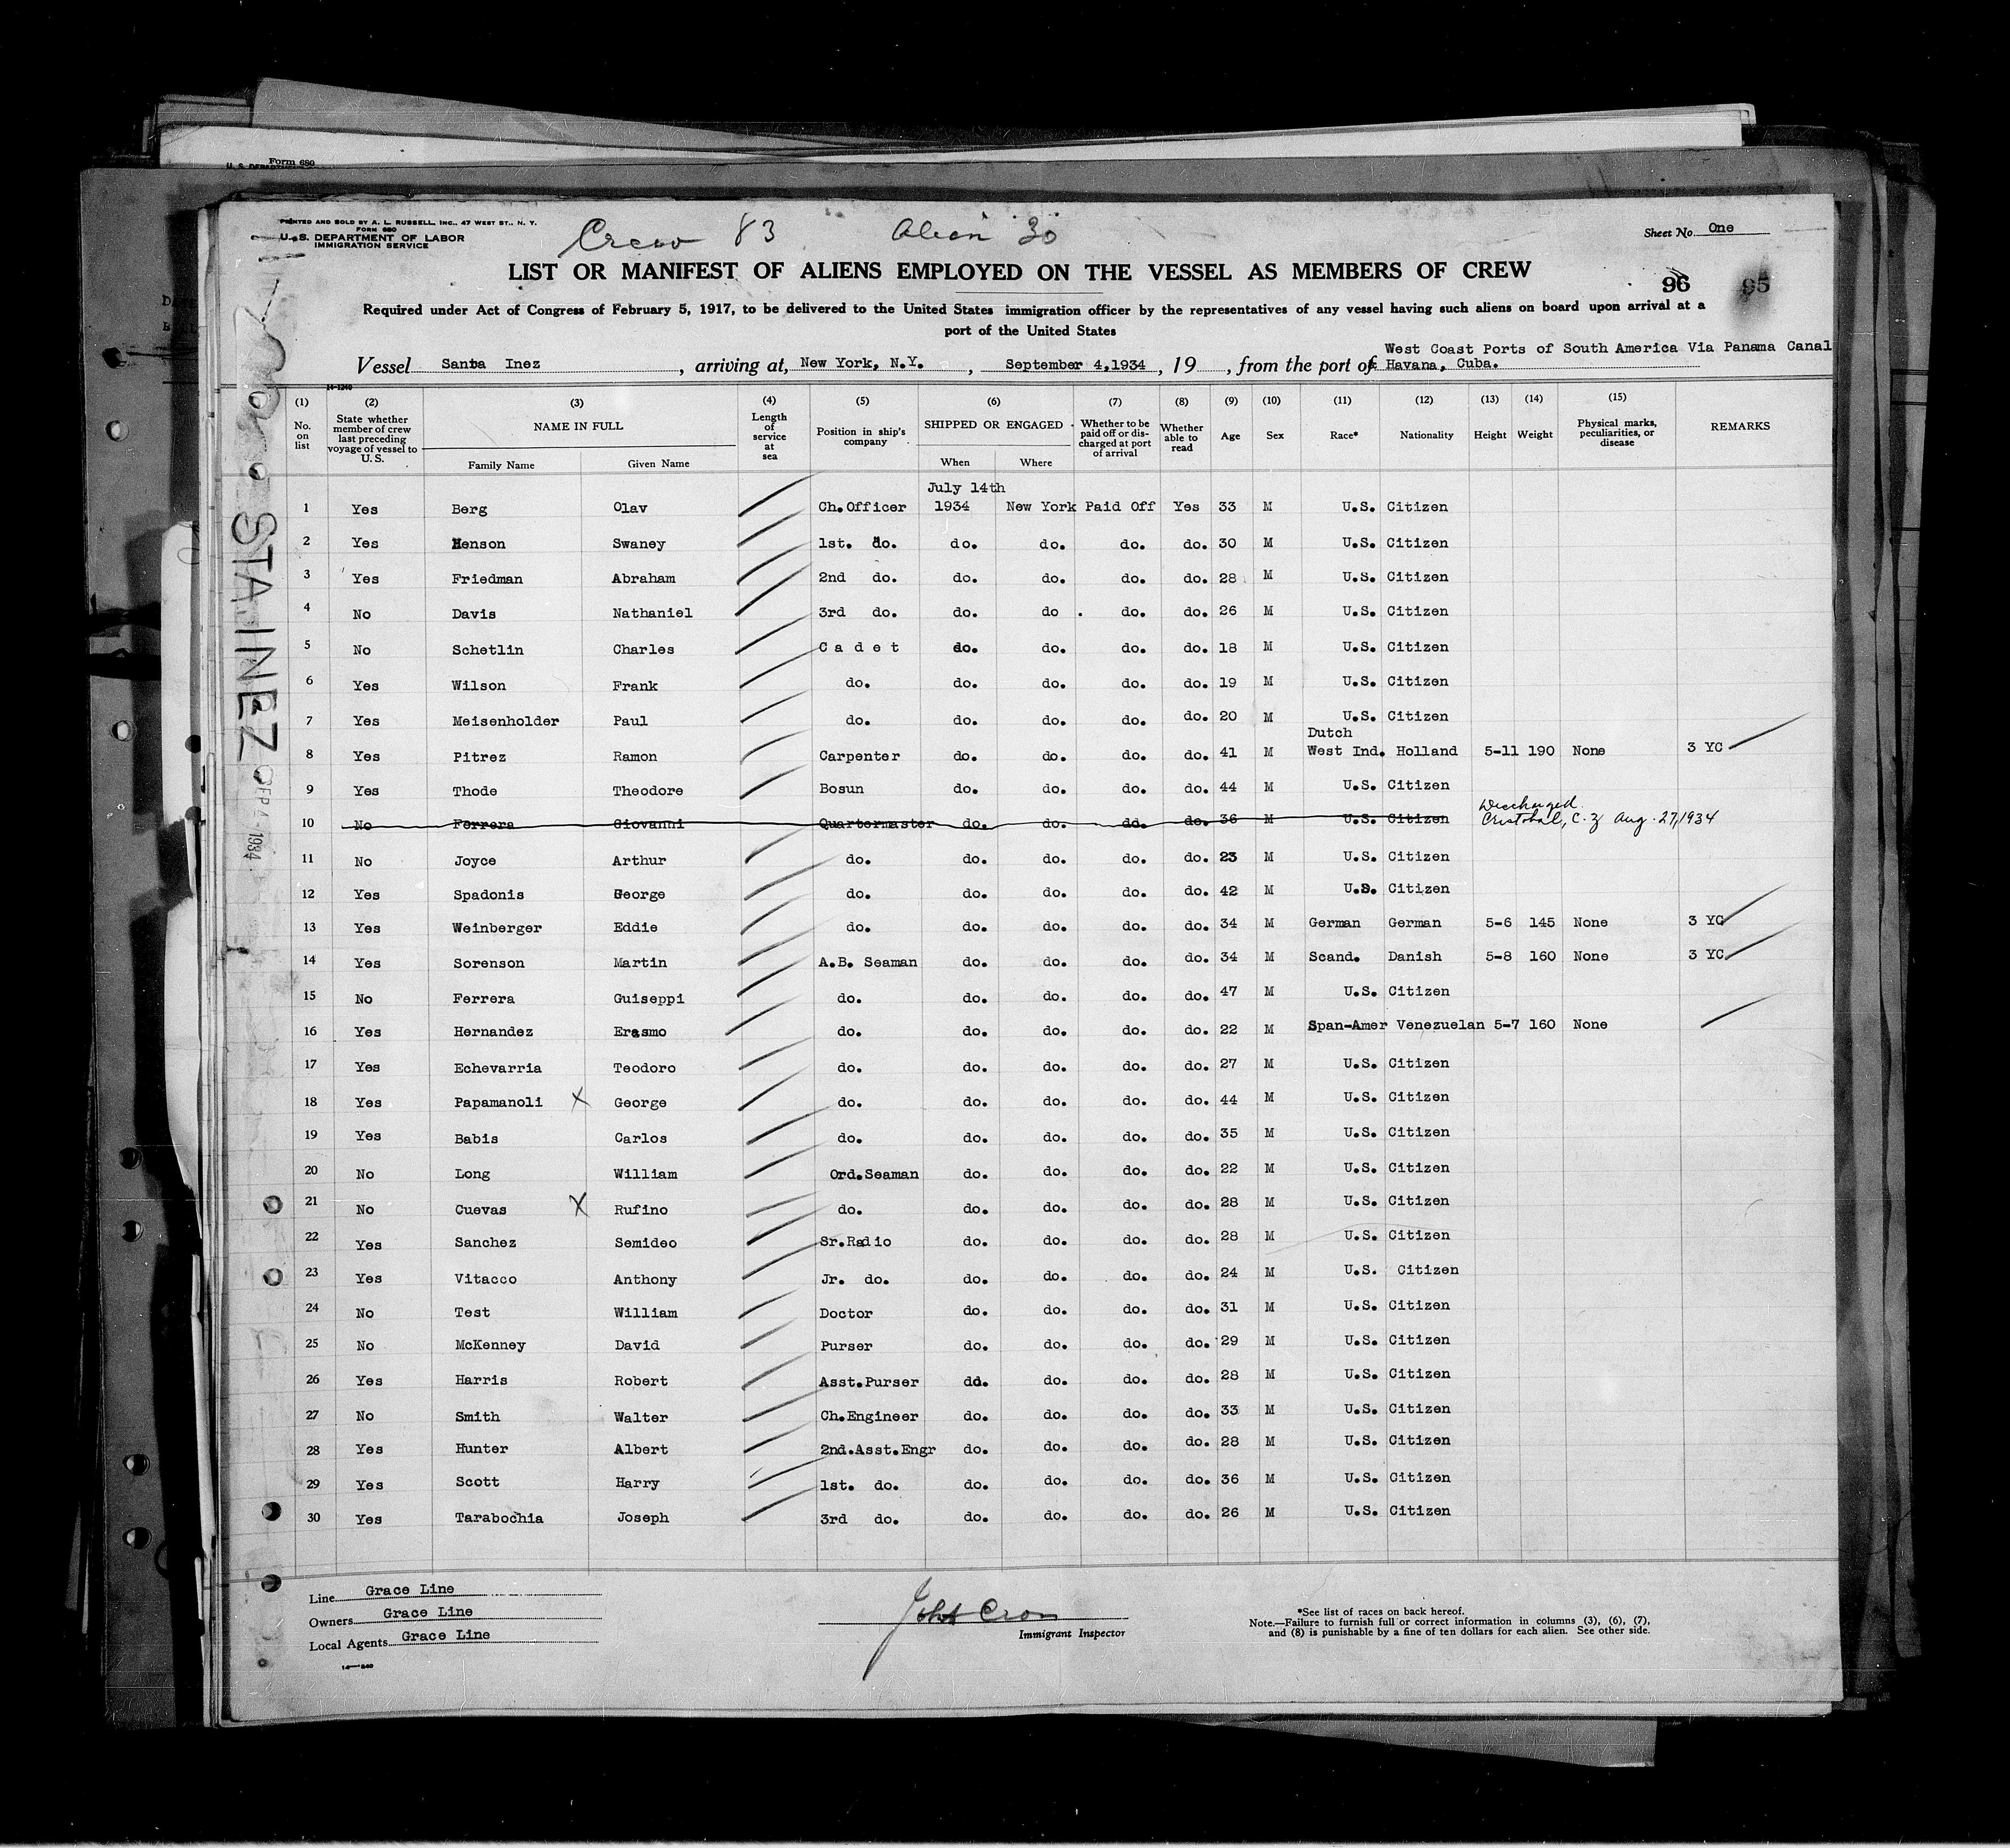 Form 680
PRINTED AND SOLD BY A. L. RUSSELL, INC., 47 WEST ST., N. Y.
FORM 680
U. S. DEPARTMENT OF LABOR
IMMIGRATION SERVICE
Crew 83 Alien 30
Sheet No. One
LIST OR MANIFEST OF ALIENS EMPLOYED ON THE VESSEL AS MEMBERS OF CREW
96 95
Required under Act of Congress of February 5, 1917, to be delivered to the United States immigration officer by the representatives of any vessel having such aliens on board upon arrival at a
port of the United States
West Coast Ports of South America Via Panama Canal
Vessel Santa Inez, arriving at, New York, N.Y., September 4,1934, 19, from the port of Havana, Cuba.
14-1240
(1) No. on list (2) State whether member of crew last preceding voyage of vessel to U. S. (3) NAME IN FULL Family Name Given Name (4) Length of service at sea (5) Position in ship's company (6) SHIPPED OR ENGAGED When Where (7) Whether to be paid off or discharged at port of arrival (8) Whether able to read (9) Age (10) Sex (11) Race* (12) Nationality (13) Height (14) Weight (15) Physical marks, peculiarities, or disease REMARKS
July 14th
1 Yes Berg Olav Ch.Officer 1934 New York Paid Off Yes 33 M U.S. Citizen
2 Yes Henson Swaney 1st. do. do. do. do. do. 30 M U.S. Citizen
3 Yes Friedman Abraham 2nd do. do. do. do. do. 28 M U.S. Citizen
4 No Davis Nathaniel 3rd do. do. do . do. do. 26 M U.S. Citizen
5 No Schetlin Charles C a d e t do. do. do. do. 18 M U.S. Citizen
6 Yes Wilson Frank do. do. do. do. do. 19 M U.S. Citizen
7 Yes Meisenholder Paul do. do. do. do. do. 20 M U.S. Citizen
Dutch
8 Yes Pitrez Ramon Carpenter do. do. do. do. 41 M West Ind. Holland 5-11 190 None 3 YC
9 Yes Thode Theodore Bosun do. do. do. do. 44 M U.S. Citizen
Discharged
10 No Ferrera Giovanni Quartermaster do. do. do. do. 36 M U.S. Citizen Cristobal, C.Z Aug. 27, 1934
11 No Joyce Arthur do. do. do. do. do. 23 M U.S. Citizen
12 Yes Spadonis George do. do. do. do. do. 42 M U.S. Citizen
13 Yes Weinberger Eddie do. do. do. do. do. 34 M German German 5-6 145 None 3 YC
14 Yes Sorenson Martin A.B. Seaman do. do. do. do. 34 M Scand. Danish 5-8 160 None 3 YC
15 No Ferrera Guiseppi do. do. do. do. do. 47 M U.S. Citizen
16 Yes Hernandez Erasmo do. do. do. do. do. 22 M Span-Amer Venezuelan 5-7 160 None
17 Yes Echevarria Teodoro do. do. do. do. do. 27 M U.S. Citizen
18 Yes Papamanoli X George do. do. do. do. do. 44 M U.S. Citizen
19 Yes Babis Carlos do. do. do. do. do. 35 M U.S. Citizen
20 No Long William Ord.Seaman do. do. do. do. 22 M U.S. Citizen
21 No Cuevas X Rufino do. do. do. do. do. 28 M U.S. Citizen
22 Yes Sanchez Semideo Sr.Radio do. do. do. do. 28 M U.S. Citizen
23 Yes Vitacco Anthony Jr. do. do. do. do. do. 24 M U.S. Citizen
24 No Test William Doctor do. do. do. do. 31 M U.S. Citizen
25 No McKenney David Purser do. do. do. do. 29 M U.S. Citizen
26 Yes Harris Robert Asst.Purser do. do. do. do. 28 M U.S. Citizen
27 No Smith Walter Ch.Engineer do. do. do. do. 33 M U.S. Citizen
28 Yes Hunter Albert 2nd.Asst.Engr do. do. do. do. 28 M U.S. Citizen
29 Yes Scott Harry 1st. do. do. do. do. do. 36 M U.S. Citizen
30 Yes Tarabochia Joseph 3rd do. do. do. do. do. 26 M U.S. Citizen
STA. INEZ
SEP 4 - 1934
Line Grace Line
Owners Grace Line
Local Agents Grace Line
John Cron
Immigrant Inspector
*See list of races on back hereof.
Note.—Failure to furnish full or correct information in columns (3), (6), (7),
and (8) is punishable by a fine of ten dollars for each alien. See other side.